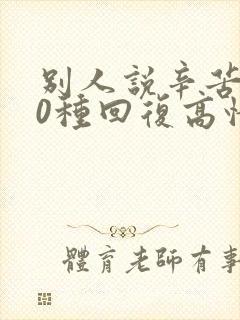 別人說辛苦
0種回復高情
體育老師有事